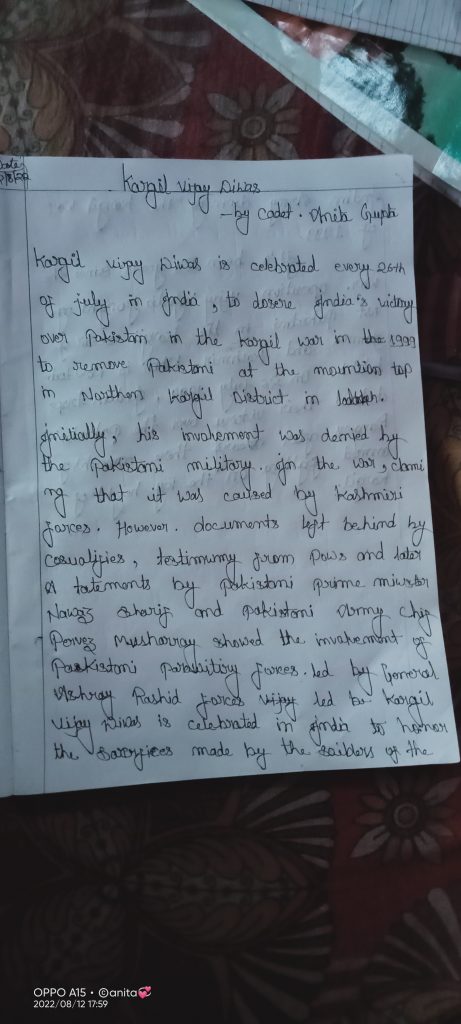 Date:
Kargil Vijay Diwas
- by Cadet. Anita Gupta
Kargil vijay Diwas is celebrated every 26th
of july in India, to dosere India's victory
over Pakistan in the kargil war in the 1999
to remove Pakistani at the mountion top
in Northen Kargil District in laddakh.
Initially, his invohement was denied by
the Pakistani military. In the war, clami
ng that it was caused by Kashmiri
forces. However. documents left behind by
casualifies, testimumy from Pows and later
statements by pakistani prime miuster
Nawaz sharif and pakistani Army chif
Pervez Musharray showed the invohement of
Paskistani forces. led by General
Ashray Rashid forces vijay led by Kargil
vijay Diwas is celebrated in India to honor
the sacrifices made by the soiblers of the
OPPO A15 • ©anita💞
2022/08/12 17:59